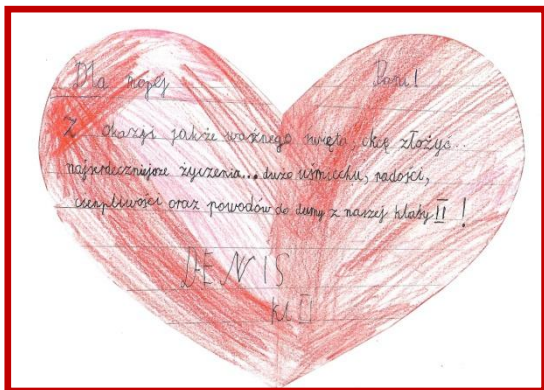 Dla mojej Pani!
Z okazji jakże ważnego święta, chcę złożyć
najserdeczniejsze życzenia... dużo uśmiechu, radości,
cierpliwości oraz powodów do dumy z naszej klasy II!
DENIS
kl II